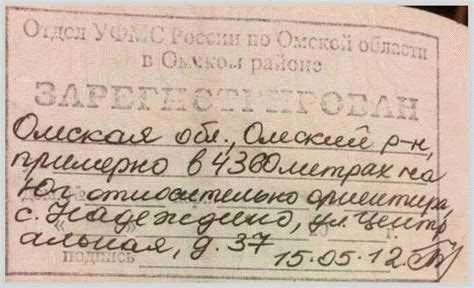 Отдел УФМС России по Омской области
в Омском районе
ЗАРЕГИСТРИРОВАН
Омская обл., Омский р-н,
примерно в 4360 метрах на
Юг относительно ориентира,
с. Надеждино, ул. Центр
альная, д. 37
15.05.12.
подпись